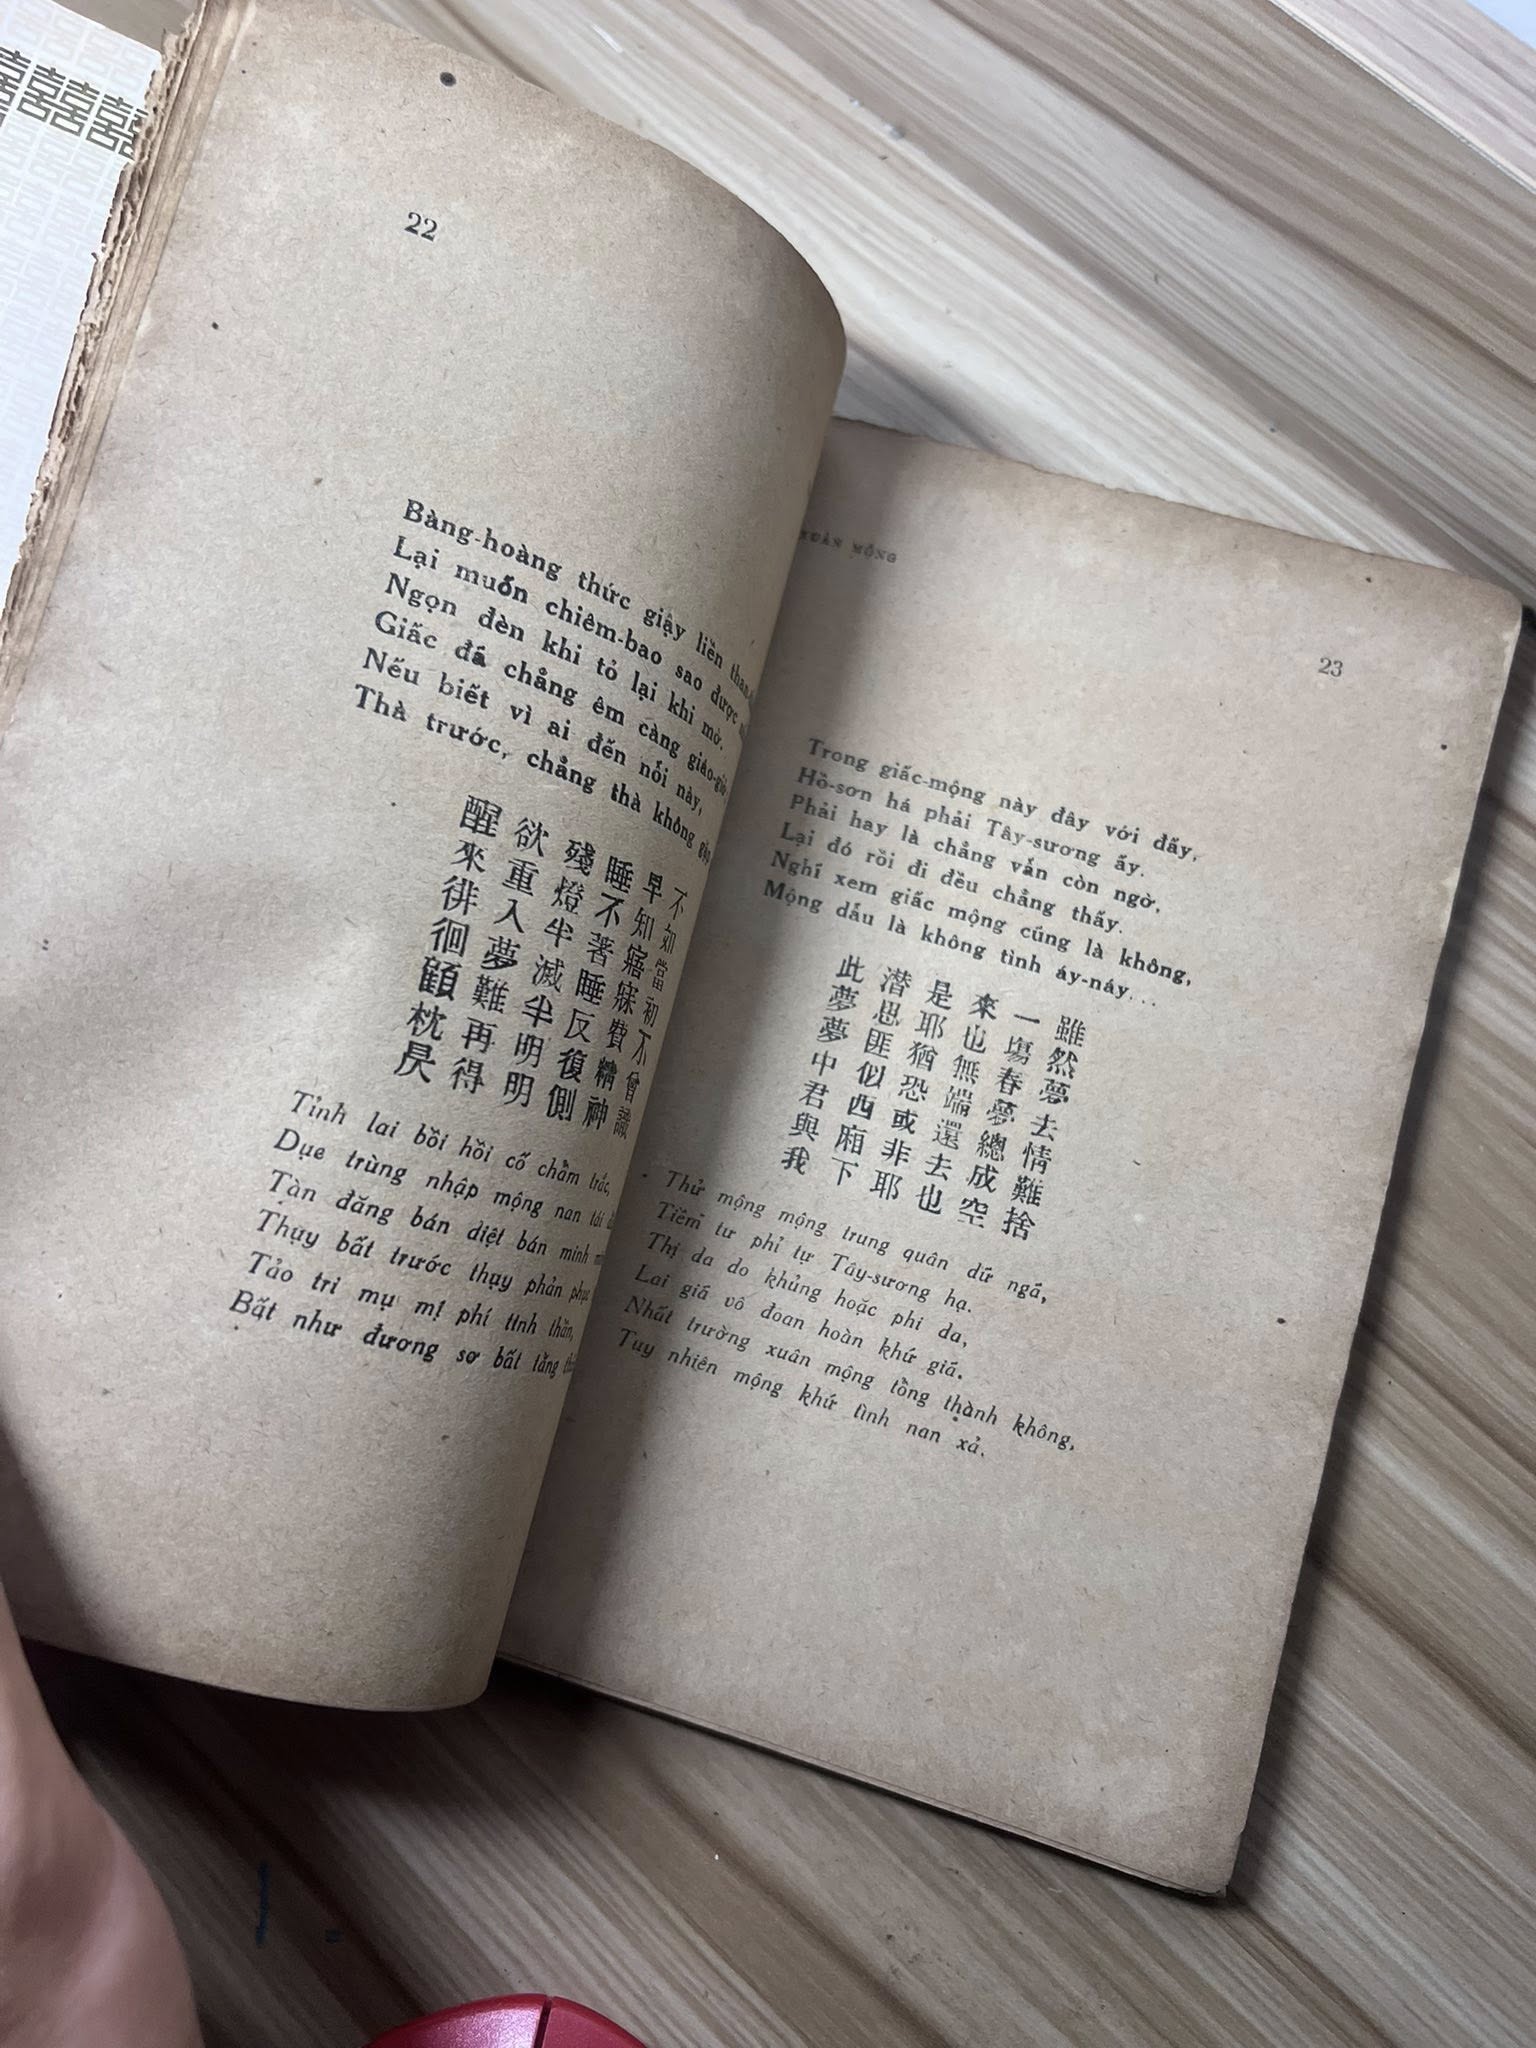 22
Bàng-hoàng thức giậy liền
Lại muốn chiêm-bao sao được
Ngọn đèn khi tỏ lại khi mờ.
Giấc đá chẳng êm càng giáo-giở,
Nếu biết vì ai đến nỗi này,
Thà trước, chẳng thà không gặp
醒來徘徊顧枕昃
欲重入夢難再得
殘燈半滅半明明
睡不著睡反復側
早知寤寐費精神
不如當初不曾識
Tỉnh lai bồi hồi cố chẩm trắc,
Dục trùng nhập mộng nan tái
Tàn đăng bán diệt bán minh
Thụy bất trước thụy phản phục
Tảo tri mụ mị phí tinh thần,
Bất như đương sơ bất tằng
XUÂN MỘNG
23
Trong giấc-mộng này đây với đấy,
Hồ-sơn há phải Tây-sương ấy.
Phải hay là chẳng vẫn còn ngờ,
Lại đó rồi đi đều chẳng thấy.
Nghĩ xem giấc mộng cũng là không,
Mộng dẫu là không tình áy-náy...
此夢夢中君與我
潛思匪似西廂下
是耶猶恐或非耶
來也無端還去也
一塲春夢總成空
雖然夢去情難捨
Thử mộng mộng trung quân dữ ngã,
Tiềm tư phỉ tự Tây-sương hạ.
Thị da do khủng hoặc phi da,
Lai giã vô đoan hoàn khứ giã.
Nhất trường xuân mộng tổng thành không,
Tuy nhiên mộng khứ tình nan xả.